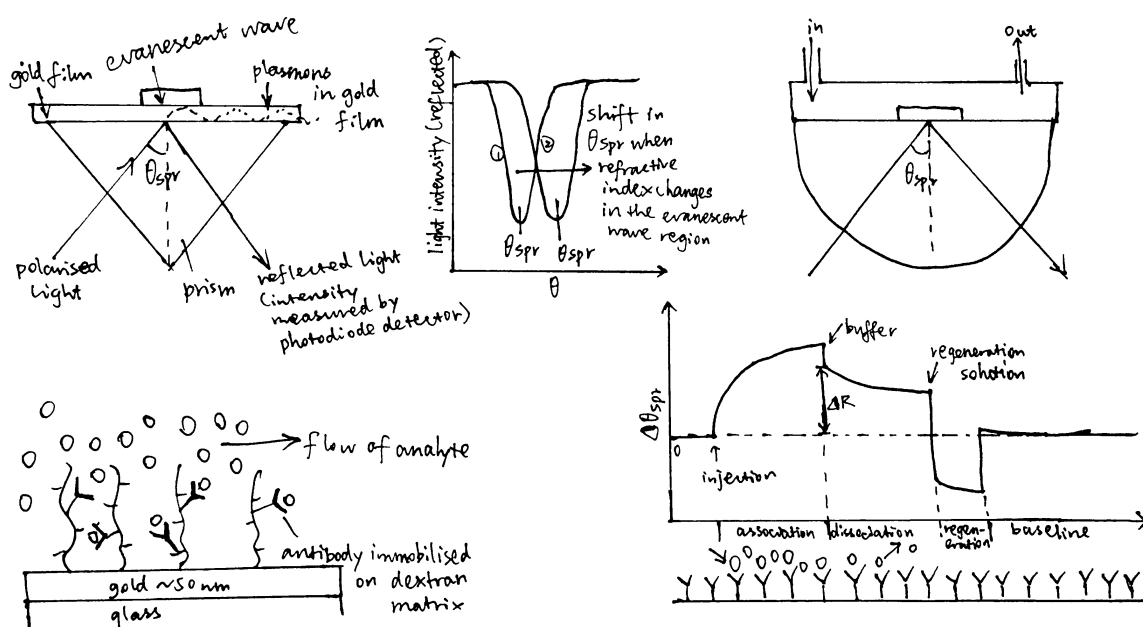 evanescent wave
gold film
plasmons
in gold
film
θspr
polarised
light
prism
reflected light
(intensity
measured by
photodiode detector)
light intensity (reflected)
①
②
shift in
θspr when
refractive
index changes
in the evanescent
wave region
θspr
θspr
θ
in
out
θspr
flow of analyte
antibody immobilised
on dextran
matrix
gold ~50nm
glass
Δθspr
0
buffer
regeneration
solution
ΔR
injection
association
dissociation
regen-
eration
baseline